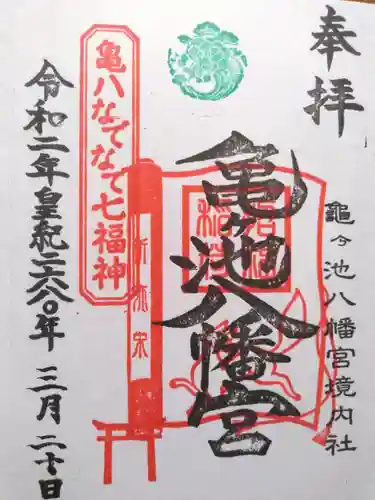 奉拝
龜ヶ池八幡宮境内社
亀ヶ池八幡宮
亀八なでなで七福神
令和二年皇紀二六八〇年三月二十日